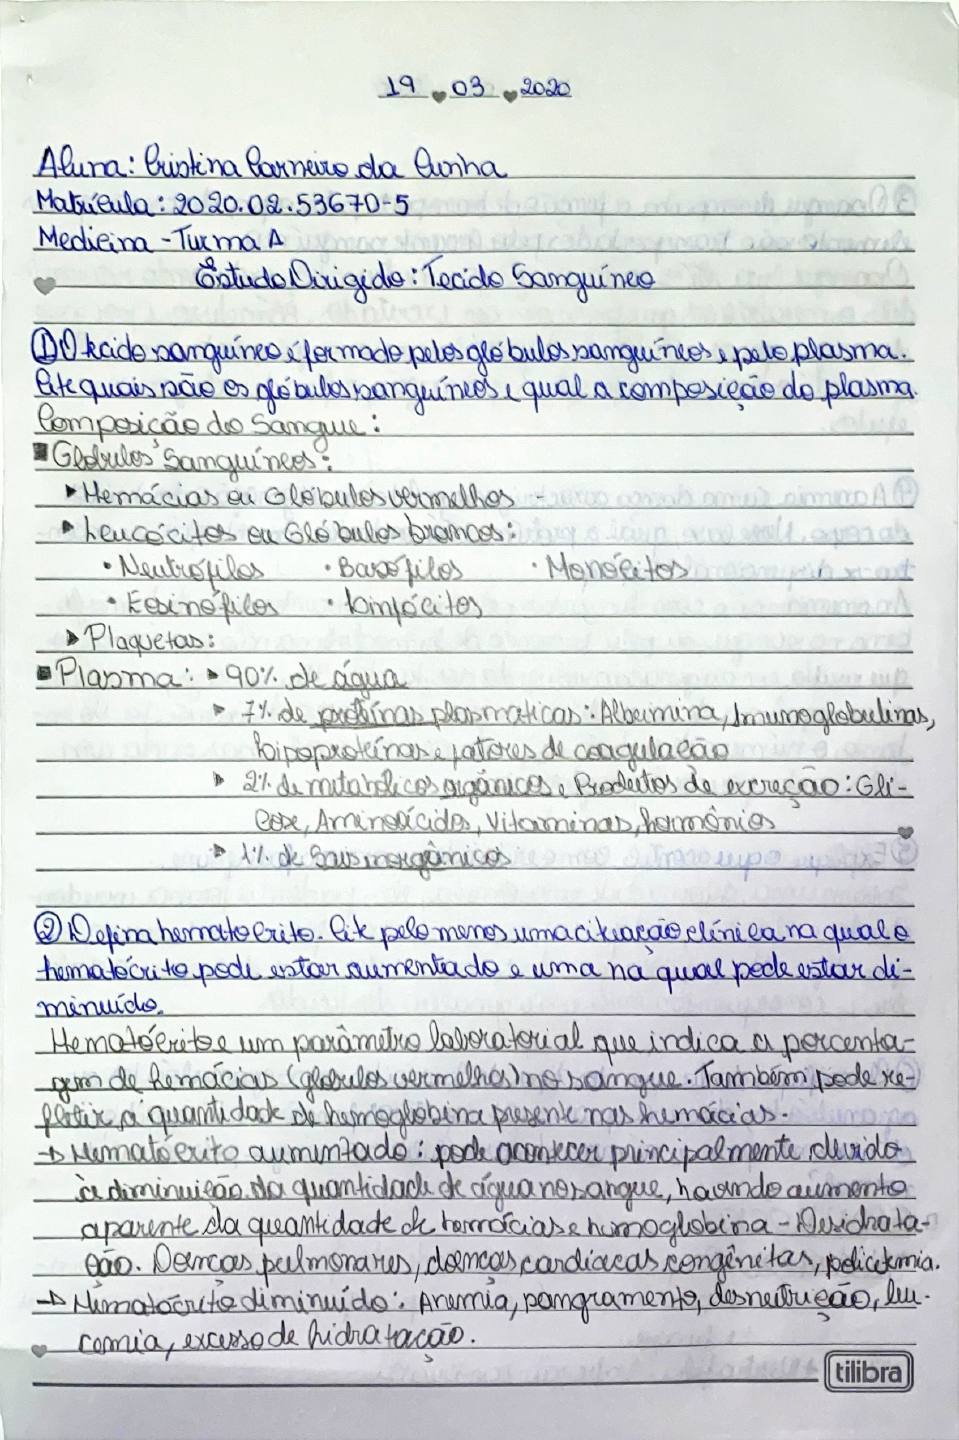 19 03 2020
Aluna: Cristina Carneiro da Cunha
Matrícula: 2020.02.53670-5
Medicina - Turma A
Estudo Dirigido: Tecido Sanguíneo
① O tecido sanguíneo é formado pelos glóbulos sanguíneos e pelo plasma.
Cite quais são os glóbulos sanguíneos e qual a composição do plasma.
Composição do Sangue:
Glóbulos Sanguíneos:
Hemácias ou Glóbulos vermelhos -
Leucócitos ou Glóbulos brancos:
• Neutrófilos • Basófilos • Monócitos
• Eosinófilos • Linfócitos
Plaquetas:
Plasma: 90% de água
7% de proteínas plasmáticas: Albumina, Imunoglobulinas,
lipoproteínas e fatores de coagulação
2% de metabólicos orgânicos e Produtos de excreção: Gli-
cose, Aminoácidos, Vitaminas, hormônios
1% de Sais inorgânicos
② Defina hematócrito. Cite pelo menos uma citiação clínica na qual o
hematócrito pode estar aumentado e uma na qual pode estar di-
minuído.
Hematócrito e um parâmetro laboratorial que indica a porcenta-
gem de hemácias (glóbulos vermelhos) no sangue. Também pode re-
fletir a quantidade de hemoglobina presente nas hemácias.
→ Hematócrito aumentado: pode acontecer principalmente devido
à diminuição da quantidade de água no sangue, havendo aumento
aparente da quantidade de hemácias e hemoglobina - Desidrata-
ção. Doenças pulmonares, doenças cardíacas congênitas, policitemia.
→ Hematócrito diminuído: Anemia, sangramento, desnutrição, leu-
cemia, excesso de hidratação.
tilibra